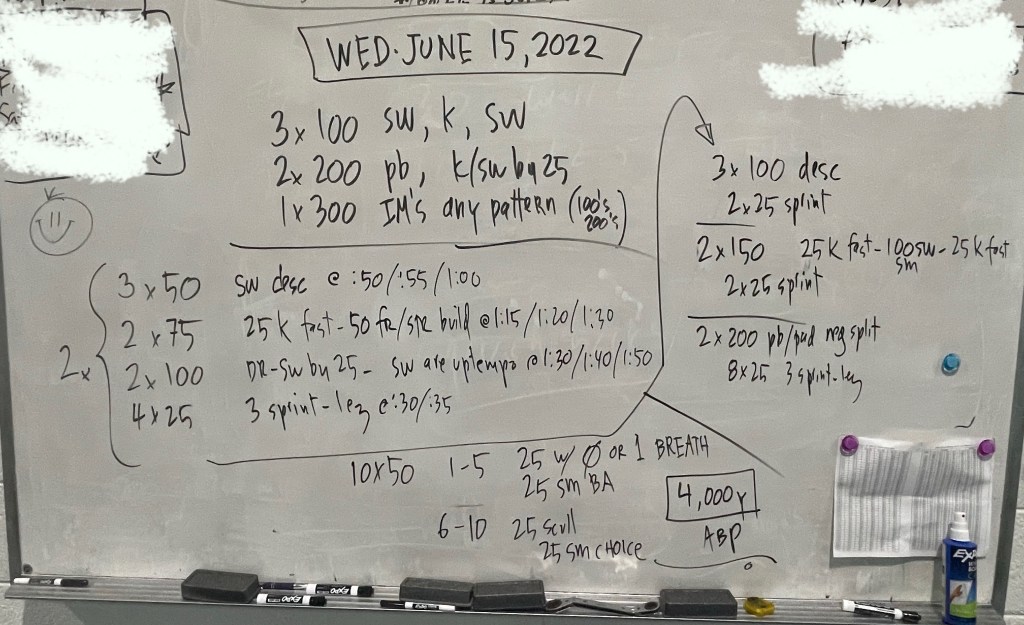 WED. JUNE 15, 2022
3x100 sw, k, sw
2x200 pb, k/sw by 25
1x300 IM's any pattern (100's, 200's)
2x
3x50 sw desc @ :50/:55/1:00
2x75 25k fast - 50 fr/str build @ 1:15/1:20/1:30
2x100 DR-sw by 25 - sw are uptempo @ 1:30/1:40/1:50
4x25 3 sprint-1ez @ :30/:35
3x100 desc
2x25 sprint
2x150 25k fast - 100sw - 25k fast
sm
2x25 sprint
2x200 pb/pad neg split
8x25 3 sprint-1ez
10x50 1-5 25 w/ Ø OR 1 BREATH
25 sm BA
6-10 25 scull
25 sm CHOICE
4,000y
ABP
EXPO